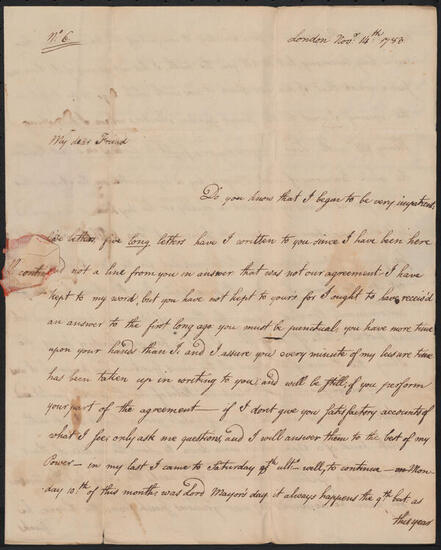 No. 6.
London Novr. 14th. 1783
My dear Friend
Do you know that I began to be very impatient,
five letters, five long letters have I written to you since I have been here
not a line from you in answer that was not our agreement I have
kept to my word, but you have not kept to yours for I ought to have receiv'd
an answer to the first long ago you must be punctual, you have more time
upon your hands than I, and I assure you every minute of my leisure time
has been taken up in writing to you, and will be still, if you perform
your part of the agreement — if I dont give you satisfactory accounts of
what I see, only ask me questions, and I will answer them to the best of my
Power — in my last I came to Saturday ulto. well, to continue — on Mon-
day 10th. of this month was Lord Mayor's day it always happens the 9th. but as
this year